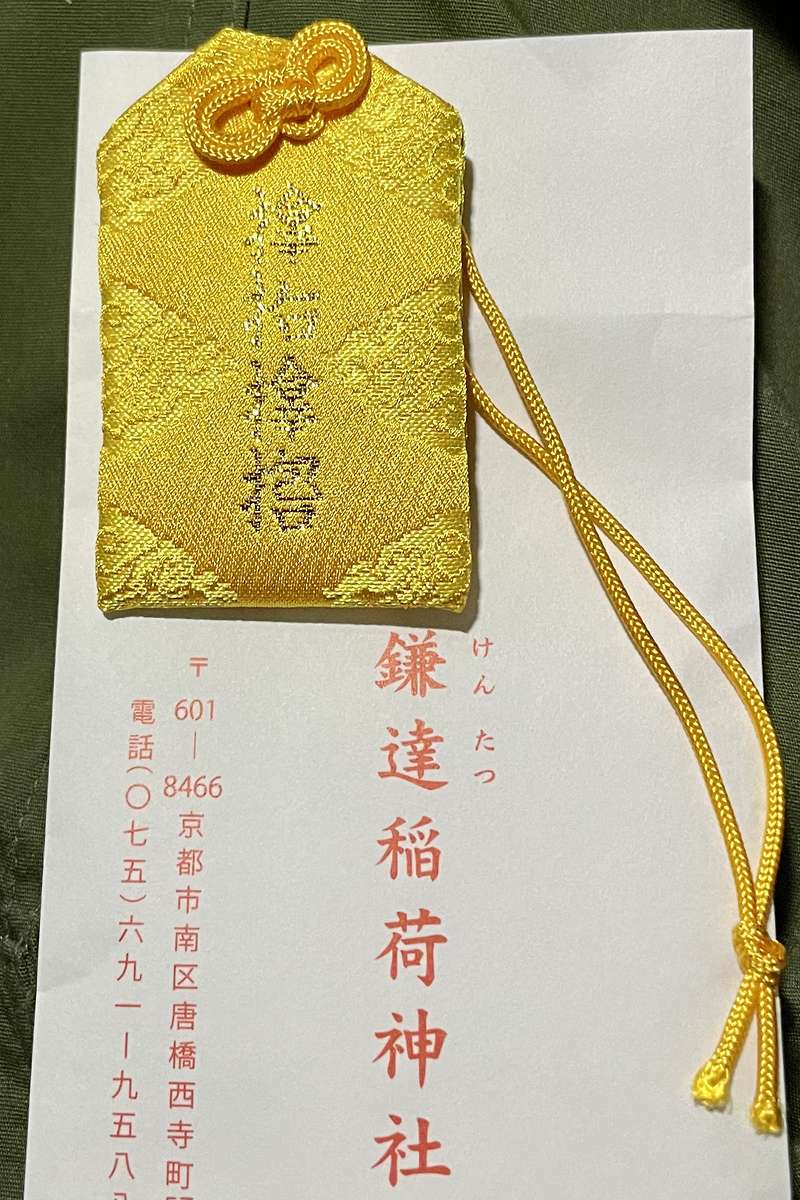 けん たつ
鎌達稲荷神社
〒601―8466京都市南区唐橋西寺町
電話(〇七五)六九一ー九五八八